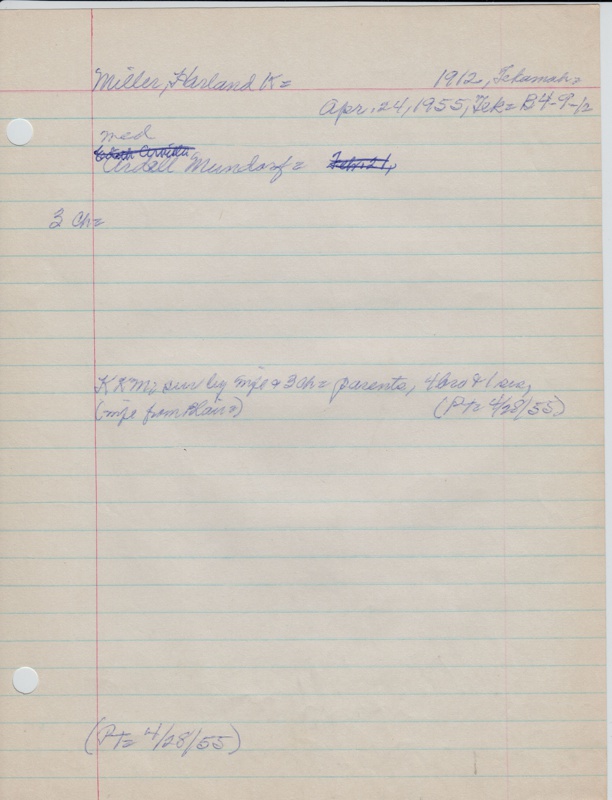 Miller, Harland K= 1912, Tekamah=
Apr. 24, 1955, Tek= B4-9-12
med
Ardell Mundorf= Feb. 21,
3 Ch=
sur by wife & 3 Ch= parents, 4 bro & 1 sis,
(wife from Blair=) (PT= 4/28/55)
(PT= 4/28/55)